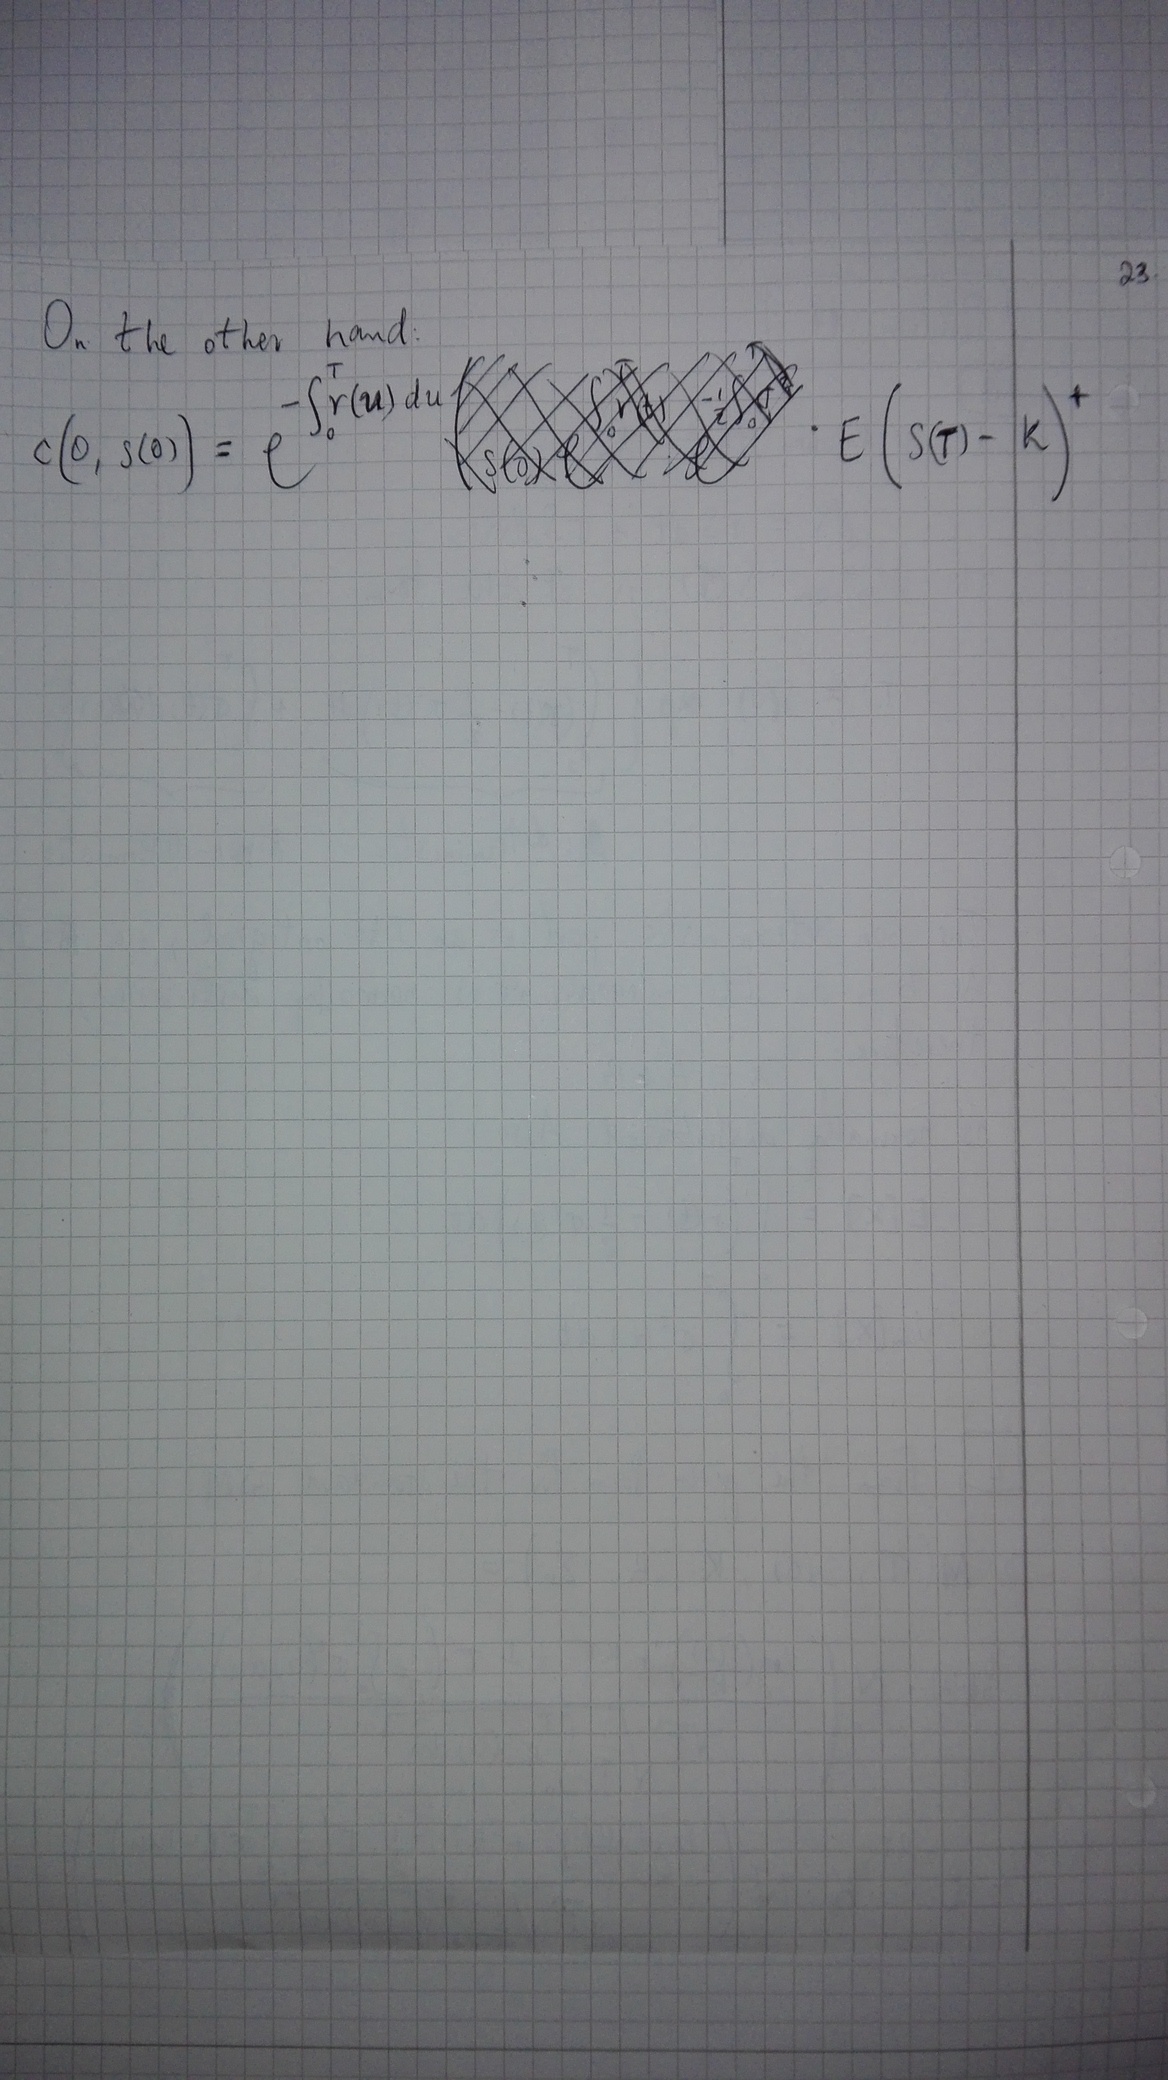 23.
On the other hand:
c(0, S(0)) = e^{-∫_0^T r(u) du} · E(S(T) - K)^+